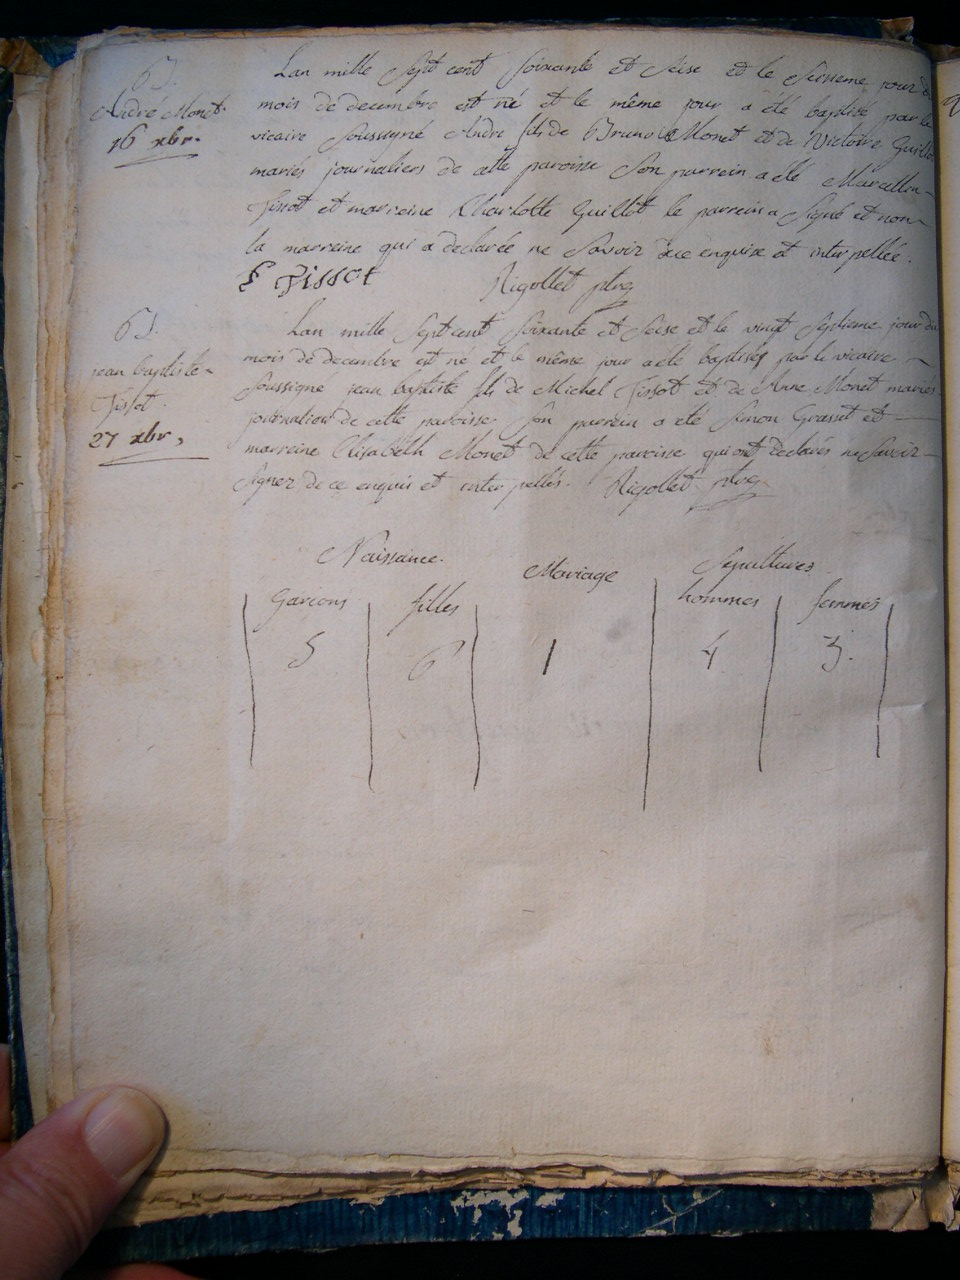 bJ.
André Monet
16 xbr.
Lan mille Sept cent Soixante et Seise et le Seisieme jour du
mois de decembre est né et le même jour a été baptisé par le
vicaire Soussigné Andre fils de Bruno Monet et de Victoire Guillot
mariés journaliers de cette paroisse Son parrein a été Marcellin
Tissot et marreine Charlotte Guillot le parrein a Signé et non
la marreine qui a declarée ne Savoir de ce enquise et interpellée.
Tissot Rigollet ptre
bJ.
jean baptiste
Tissot
27 xbr,
Lan mille Sept cent Soixante et Seise et le vingt Septieme jour du
mois de decembre est né et le même jour a été baptisé par le vicaire
Soussigne jean baptiste fils de Michel Tissot et de Anne Monet mariés
journalier de cette paroisse Son parrein a été Simon Grasset et
marreine Elisabeth Monet de cette paroisse qui ont declarés ne Savoir
Signer de ce enquis et interpellés. Rigollet ptre
Naissance. Mariage Sepultures
Garçons filles hommes femmes
5 6 1 4 3.